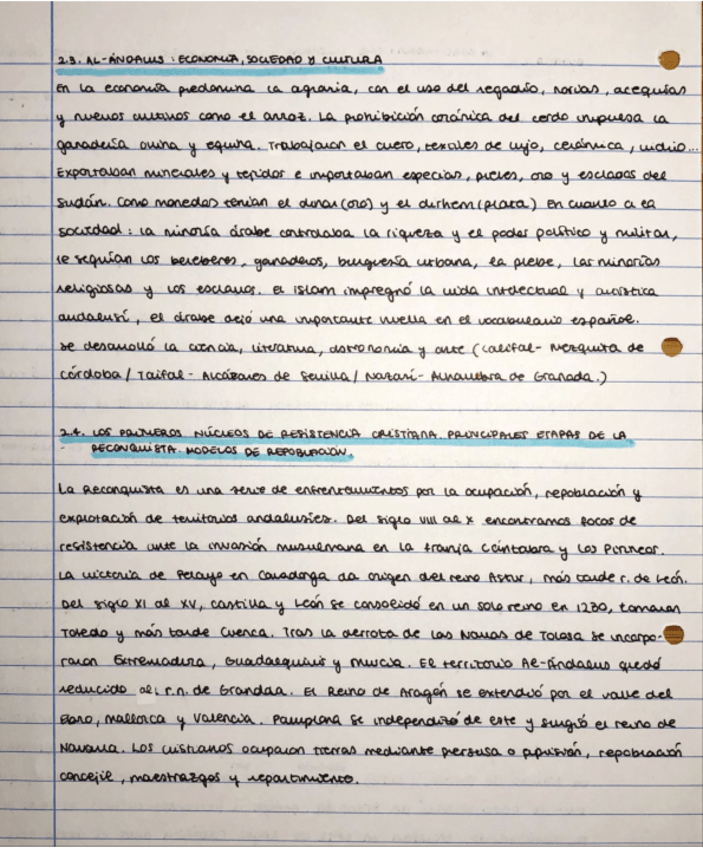 2.3. AL-ÁNDALUS: ECONOMÍA, SOCIEDAD Y CULTURA
En la economía predomina la agraria, con el uso del regadío, norias, acequias
y nuevos cultivos como el arroz. La prohibición coránica del cerdo impulsa la
ganadería ovina y equina. Trabajaron el cuero, textiles de lujo, cerámica, vidrio...
Exportaban minerales y tejidos e importaban especias, pieles, oro y esclavos del
Sudán. Como monedas tenían el dinar (oro) y el dirhem (plata) En cuanto a la
sociedad: la minoría árabe controlaba la riqueza y el poder político y militar,
le seguían los bereberes, ganaderos, burguesía urbana, la plebe, las minorías
religiosas y los esclavos. El islam impregnó la vida intelectual y artística
andalusí, el árabe dejó una importante huella en el vocabulario español.
Se desarrolló la ciencia, literatura, astronomía y arte (Califal- Mezquita de
Córdoba / Taifal- Alcázares de Sevilla / Nazarí- Alhambra de Granada.)
2.4. LOS PRIMEROS NÚCLEOS DE RESISTENCIA CRISTIANA. PRINCIPALES ETAPAS DE LA
RECONQUISTA. MODELOS DE REPOBLACIÓN.
La Reconquista es una serie de enfrentamientos por la ocupación, repoblación y
explotación de territorios andalusíes. Del siglo VIII al X encontramos focos de
resistencia ante la invasión musulmana en la franja Cántabra y los Pirineos.
La victoria de Pelayo en Covadonga da origen del reino Astur, más tarde r. de León.
Del siglo XI al XV, Castilla y León se consolidó en un solo reino en 1230, tomaron
Toledo y más tarde Cuenca. Tras la derrota de las Navas de Tolosa se incorpo-
raron Extremadura, Guadalquivir y Murcia. El territorio Al-Ándalus quedó
reducido al r.n. de Grandaa. El Reino de Aragón se extendió por el valle del
Ebro, Mallorca y Valencia. Pamplona se independizó de este y surgió el reino de
Navarra. Los cristianos ocuparon tierras mediante o aprisión, repoblación
concejil, maestrazgos y repartimiento.